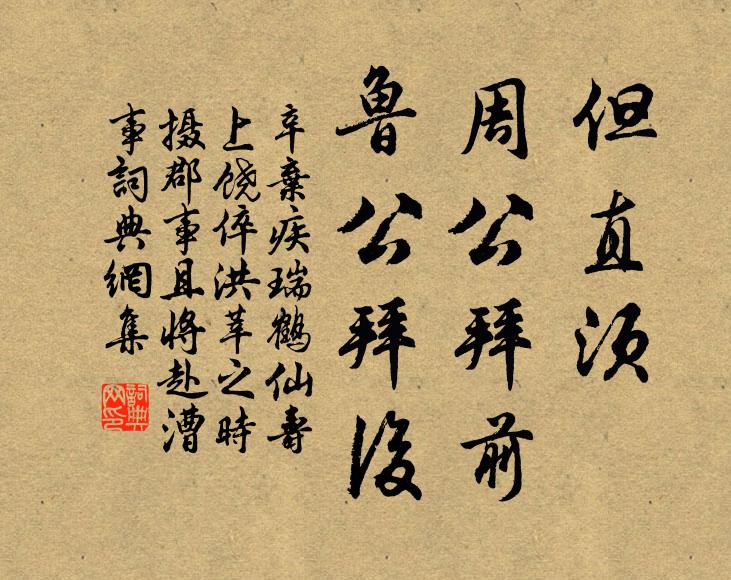 但直须
周公拜前
鲁公拜後
辛棄疾瑞鹤仙壽
上饶倅洪莘之時
摄郡事且将赴漕
事詞典網集
詞典
网印